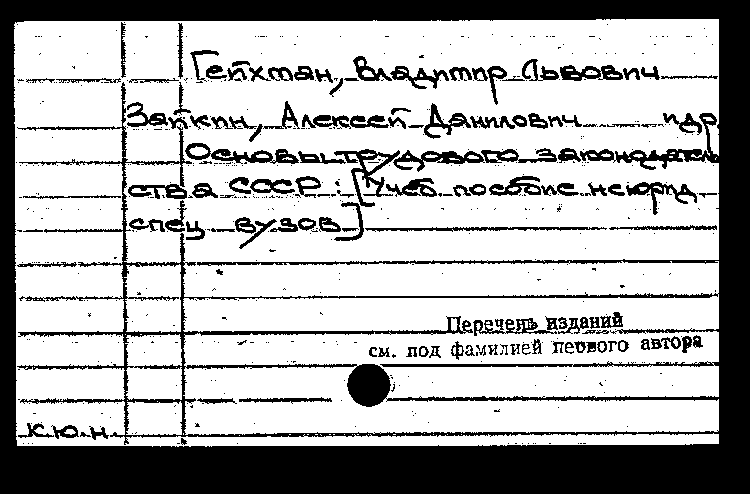 Гейхман, Владимир Львович
Зайкин, Алексей Данилович и др.
Основы трудового законодатель
ства СССР: [Учеб пособие неюрид.
спец вузов]
Перечень изданий
см. под фамилией первого автора
к.ю.н.